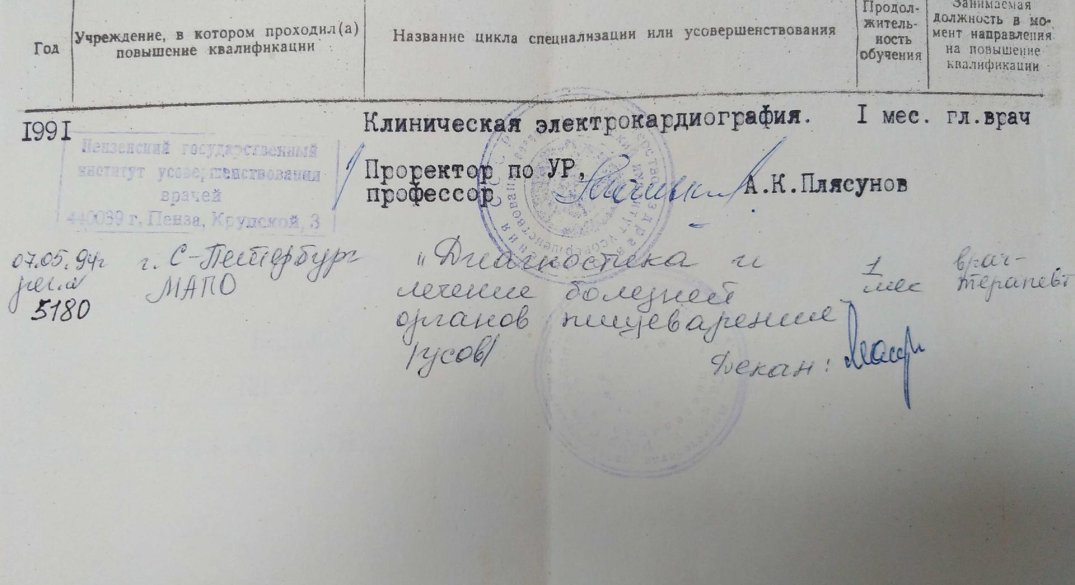 Год
Учреждение, в котором проходил(а)
повышение квалификации
Название цикла специализации или усовершенствования
Продол-
житель-
ность
обучения
Занимаемая
должность в мо-
мент направления
на повышение
квалификации
I99I
Клиническая электрокардиография.
I мес.
гл.врач
Пензенский государственный
институт усовершенствования
врачей
440039 г. Пенза, Крупской, 3
Проректор по УР,
профессор
А.К.Плясунов
07.05.94г
5180
г. С-Петербург
МАПО
"Диагностика и
лечение болезней
органов пищеварения
/усов/
1
мес
врач-
терапевт
Декан: